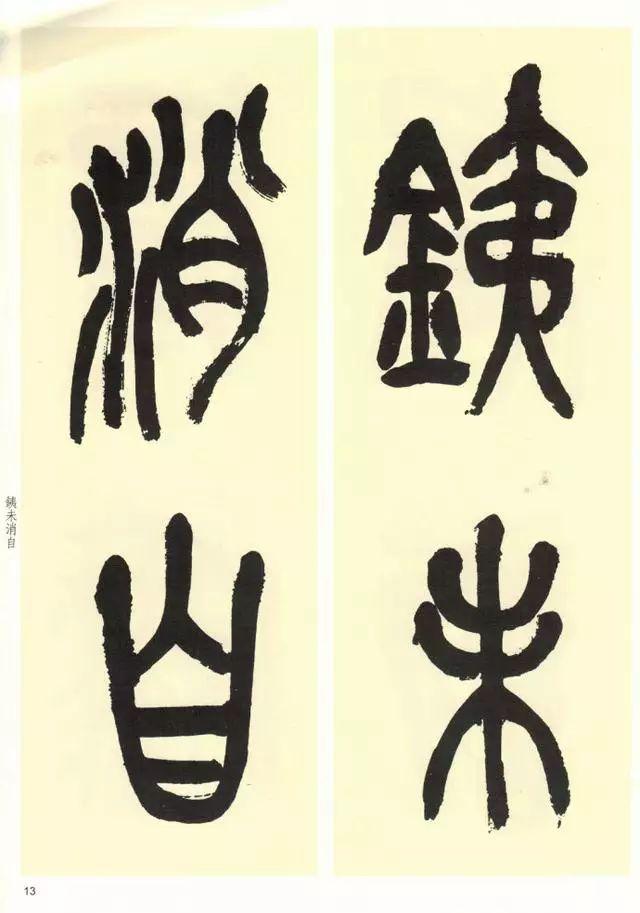 銕未
消自
銕未消自
13